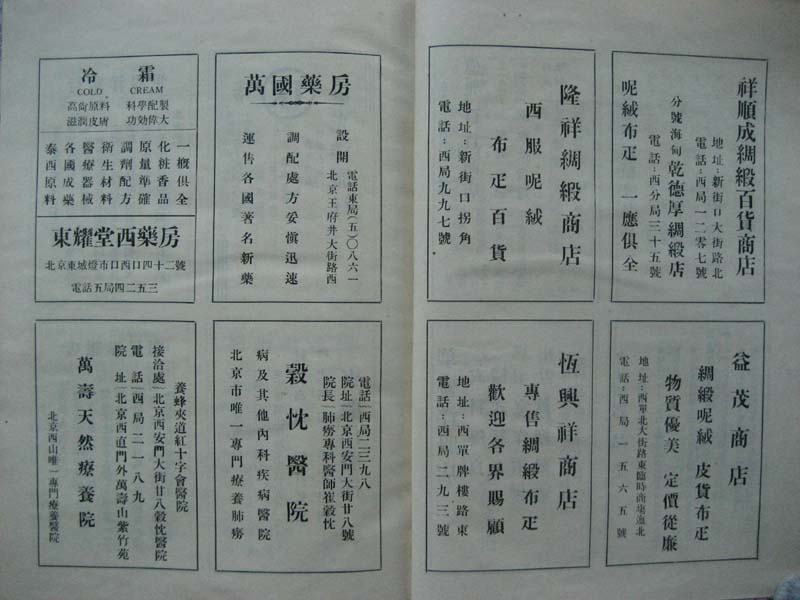 祥順成綢緞百貨商店
地址：新街口大街路北
電話：西局一二零七號
分號海甸乾德厚綢緞店
電話：西分局三十五號
呢絨布疋　一應俱全
隆祥綢緞商店
西服呢絨
布疋百貨
地址：新街口拐角
電話：西局九九七號
益茂商店
綢緞呢絨　皮貨布疋
物質優美　定價從廉
地址：西單北大街路東臨時商場迤北
電話：西局一五六五號
恆興祥商店
專售綢緞布疋
歡迎各界賜顧
地址：西單牌樓路東
電話：西局二九三號
萬國藥房
設開
北京王府井大街路西
電話東局（五）〇八六一
調配處方妥慎迅速
運售各國著名新藥
冷霜
COLD CREAM
高尚原料　科學配製
滋潤皮膚　功效偉大
一概俱全
化粧香品
原量準確
調劑配方
衛生材料
醫療器械
各國成藥
泰西原料
東耀堂西藥房
北京東城燈市口西口四十二號
電話五局四二五三
電話　西局二三九八
院址　北京西安門大街廿八號
院長　肺癆專科醫師崔穀忱
穀忱醫院
病及其他內科疾病醫院
北京市唯一專門療養肺癆
養蜂夾道紅十字會醫院
接洽處　北京西安門大街廿八穀忱醫院
電話　西局二一八九
院址　北京西直門外萬壽山紫竹苑
萬壽天然療養院
北京西山唯一專門療養醫院